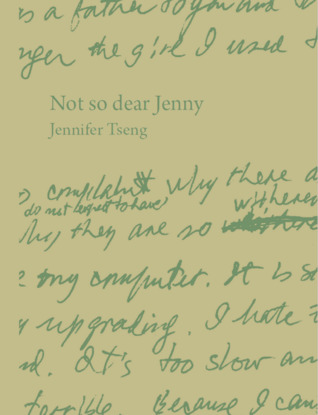 is a father to you and
nger the girl I used
Not so dear Jenny
Jennifer Tseng
complaint why there a
do not expect to have
they are so
my computer. It is s
upgrading. I hate
It's too slow an
terrible. Because I can